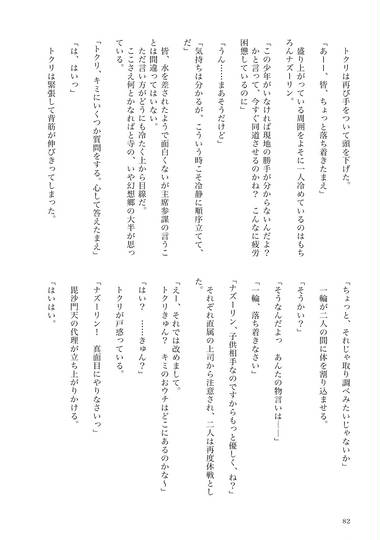 トクリは再び手をついて頭を下げた。
「あーー、皆、ちょっと落ち着きたまえ」
盛り上がっている周囲をよそに一人冷めているのはもち
ろんナズーリン。
「この少年がいなければ現地の勝手が分からないんだよ？
かと言って、今すぐ同道させるのかね？　こんなに疲労
困憊しているのに」
「うん……まあそうだけど」
「気持ちは分かるが、こういう時こそ冷静に順序立てて、
ね」
皆、水を差されたようで面白くないが主席参謀の言うこ
とは間違ってはいない。
ただ言い方がどうにも冷たく上から目線だ。
ここさえ何とかなればと寺の、いや幻想郷の大半が思っ
ている。
「トクリ、キミにいくつか質問をする。心して答えたまえ」
「は、はいっ」
トクリは緊張して背筋が伸びきってしまった。
「ちょっと、それじゃ取り調べみたいじゃないか」
一輪が二人の間に体を割り込ませる。
「そうかい？」
「そうなんだよっ　あんたの物言いは――」
「一輪、落ち着きなさい」
「ナズーリン、子供相手なのですからもっと優しく、ね？」
それぞれ直属の上司から注意され、二人は再度休戦とし
た。
「えー、それでは改めまして。
トクリきゅん？　キミのおウチはどこにあるのかな〜」
「はい？　……きゅん？」
トクリが戸惑っている。
「ナズーリン！　真面目にやりなさいっ」
毘沙門天の代理が立ち上がりかける。
「はいはい。
82